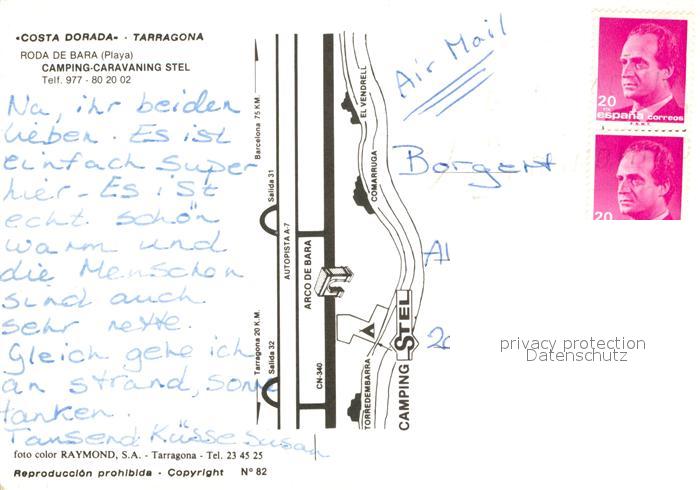 «COSTA DORADA» - TARRAGONA
RODA DE BARA (Playa)
CAMPING-CARAVANING STEL
Telf. 977 - 80 20 02
Na, ihr beiden
lieben. Es ist
einfach super
hier. Es ist
echt schön
warm und
die Menschen
sind auch
sehr nette.
Gleich gehe ich
an Strand, Sonne
tanken.
Tausend Küsse Susan
foto color RAYMOND, S.A. - Tarragona - Tel. 23 45 25
Reproducción prohibida - Copyright N.º 82
Barcelona 75 KM.
Tarragona 20 KM.
Salida 31
Salida 32
AUTOPISTA A-7
ARCO DE BARA
CN-340
EL VENDRELL
COMARRUGA
TORREDEMBARRA
CAMPING STEL
Air Mail
Borgert
20
españa correos
20
privacy protection
Datenschutz